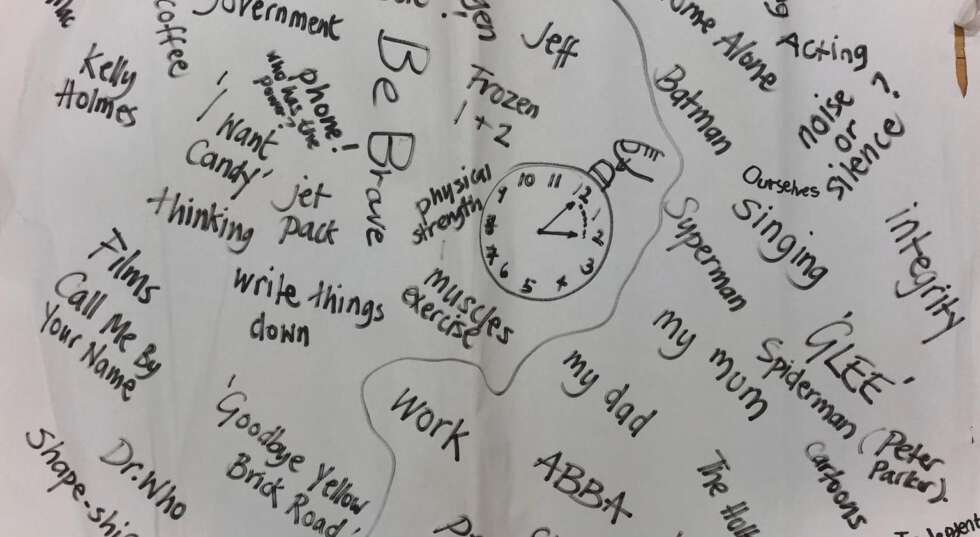 coffee
Government
Kelly
Holmes
phone!
who has the
power?
'I Want
Candy'
jet
pack
thinking
Be Brave
Jeff
Frozen
1 + 2
physical
strength
muscles
exercise
10 11 12 1 2 3 4 5 6 7 8 9
write things
down
Films
Call Me By
Your Name
'Goodbye Yellow
Brick Road'
Dr. Who
Work
ABBA
my dad
my mum
Home Alone
Acting
Batman
noise
or
silence?
Ourselves
Singing
Superman
integrity
'GLEE'
Spiderman (Peter
Parker).
Cartoons
The